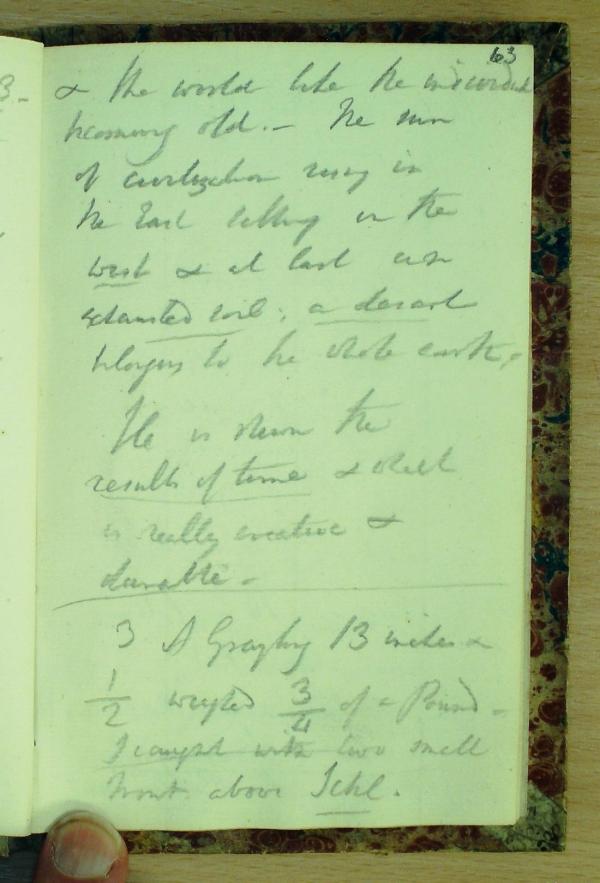 63
3.-
& the world like the individual
becoming old. - The sun
of civilization rising in
the East setting in the
west & at last an
exhausted soil; a desart
belongs to the whole earth,
He is shewn the
results of time & what
is really creative &
durable. -
3 A Grayling 13 inches &
1/2 weighed 3/4 of a Pound -
I caught with two small
trout above Ischl.